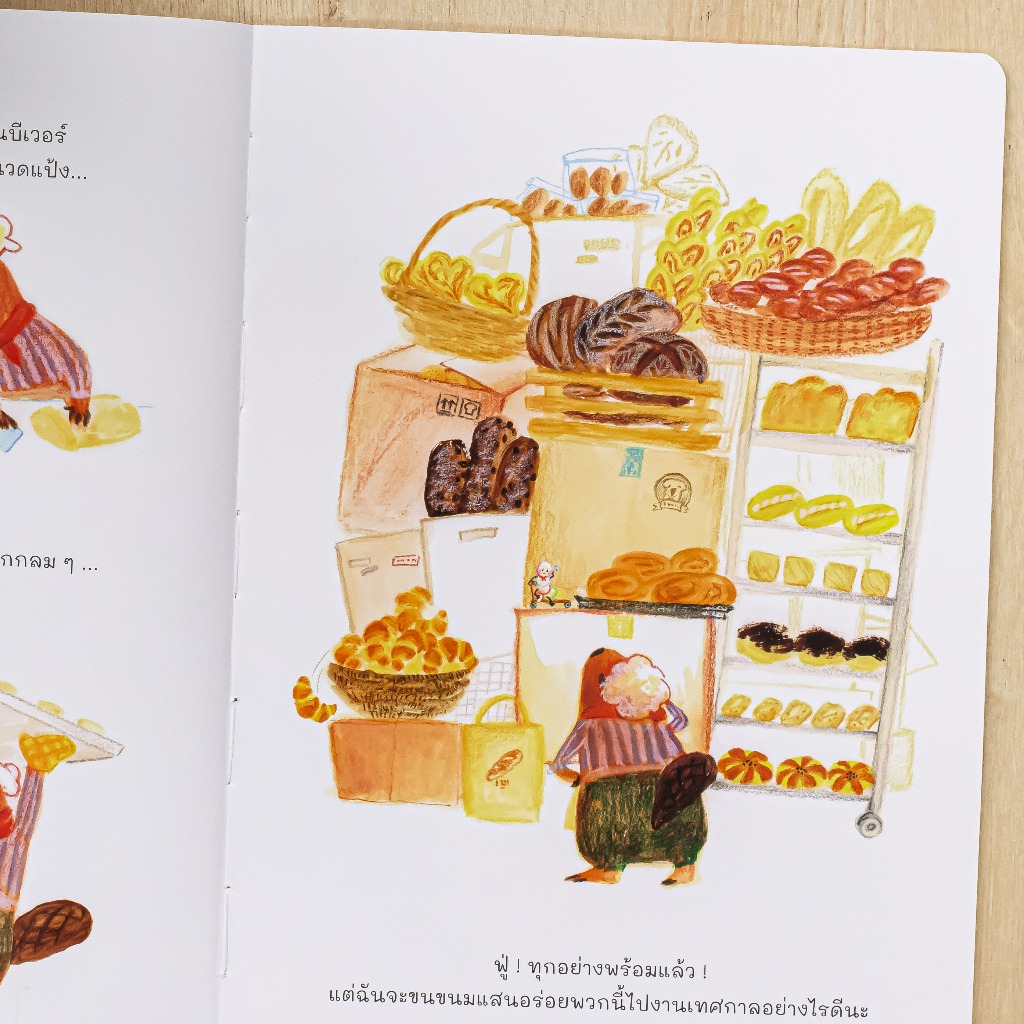 นบีเวอร์
นวดแป้ง...
กกลม ๆ ...
ฟู่ ! ทุกอย่างพร้อมแล้ว !
แต่ฉันจะขนขนมแสนอร่อยพวกนี้ไปงานเทศกาลอย่างไรดีนะ